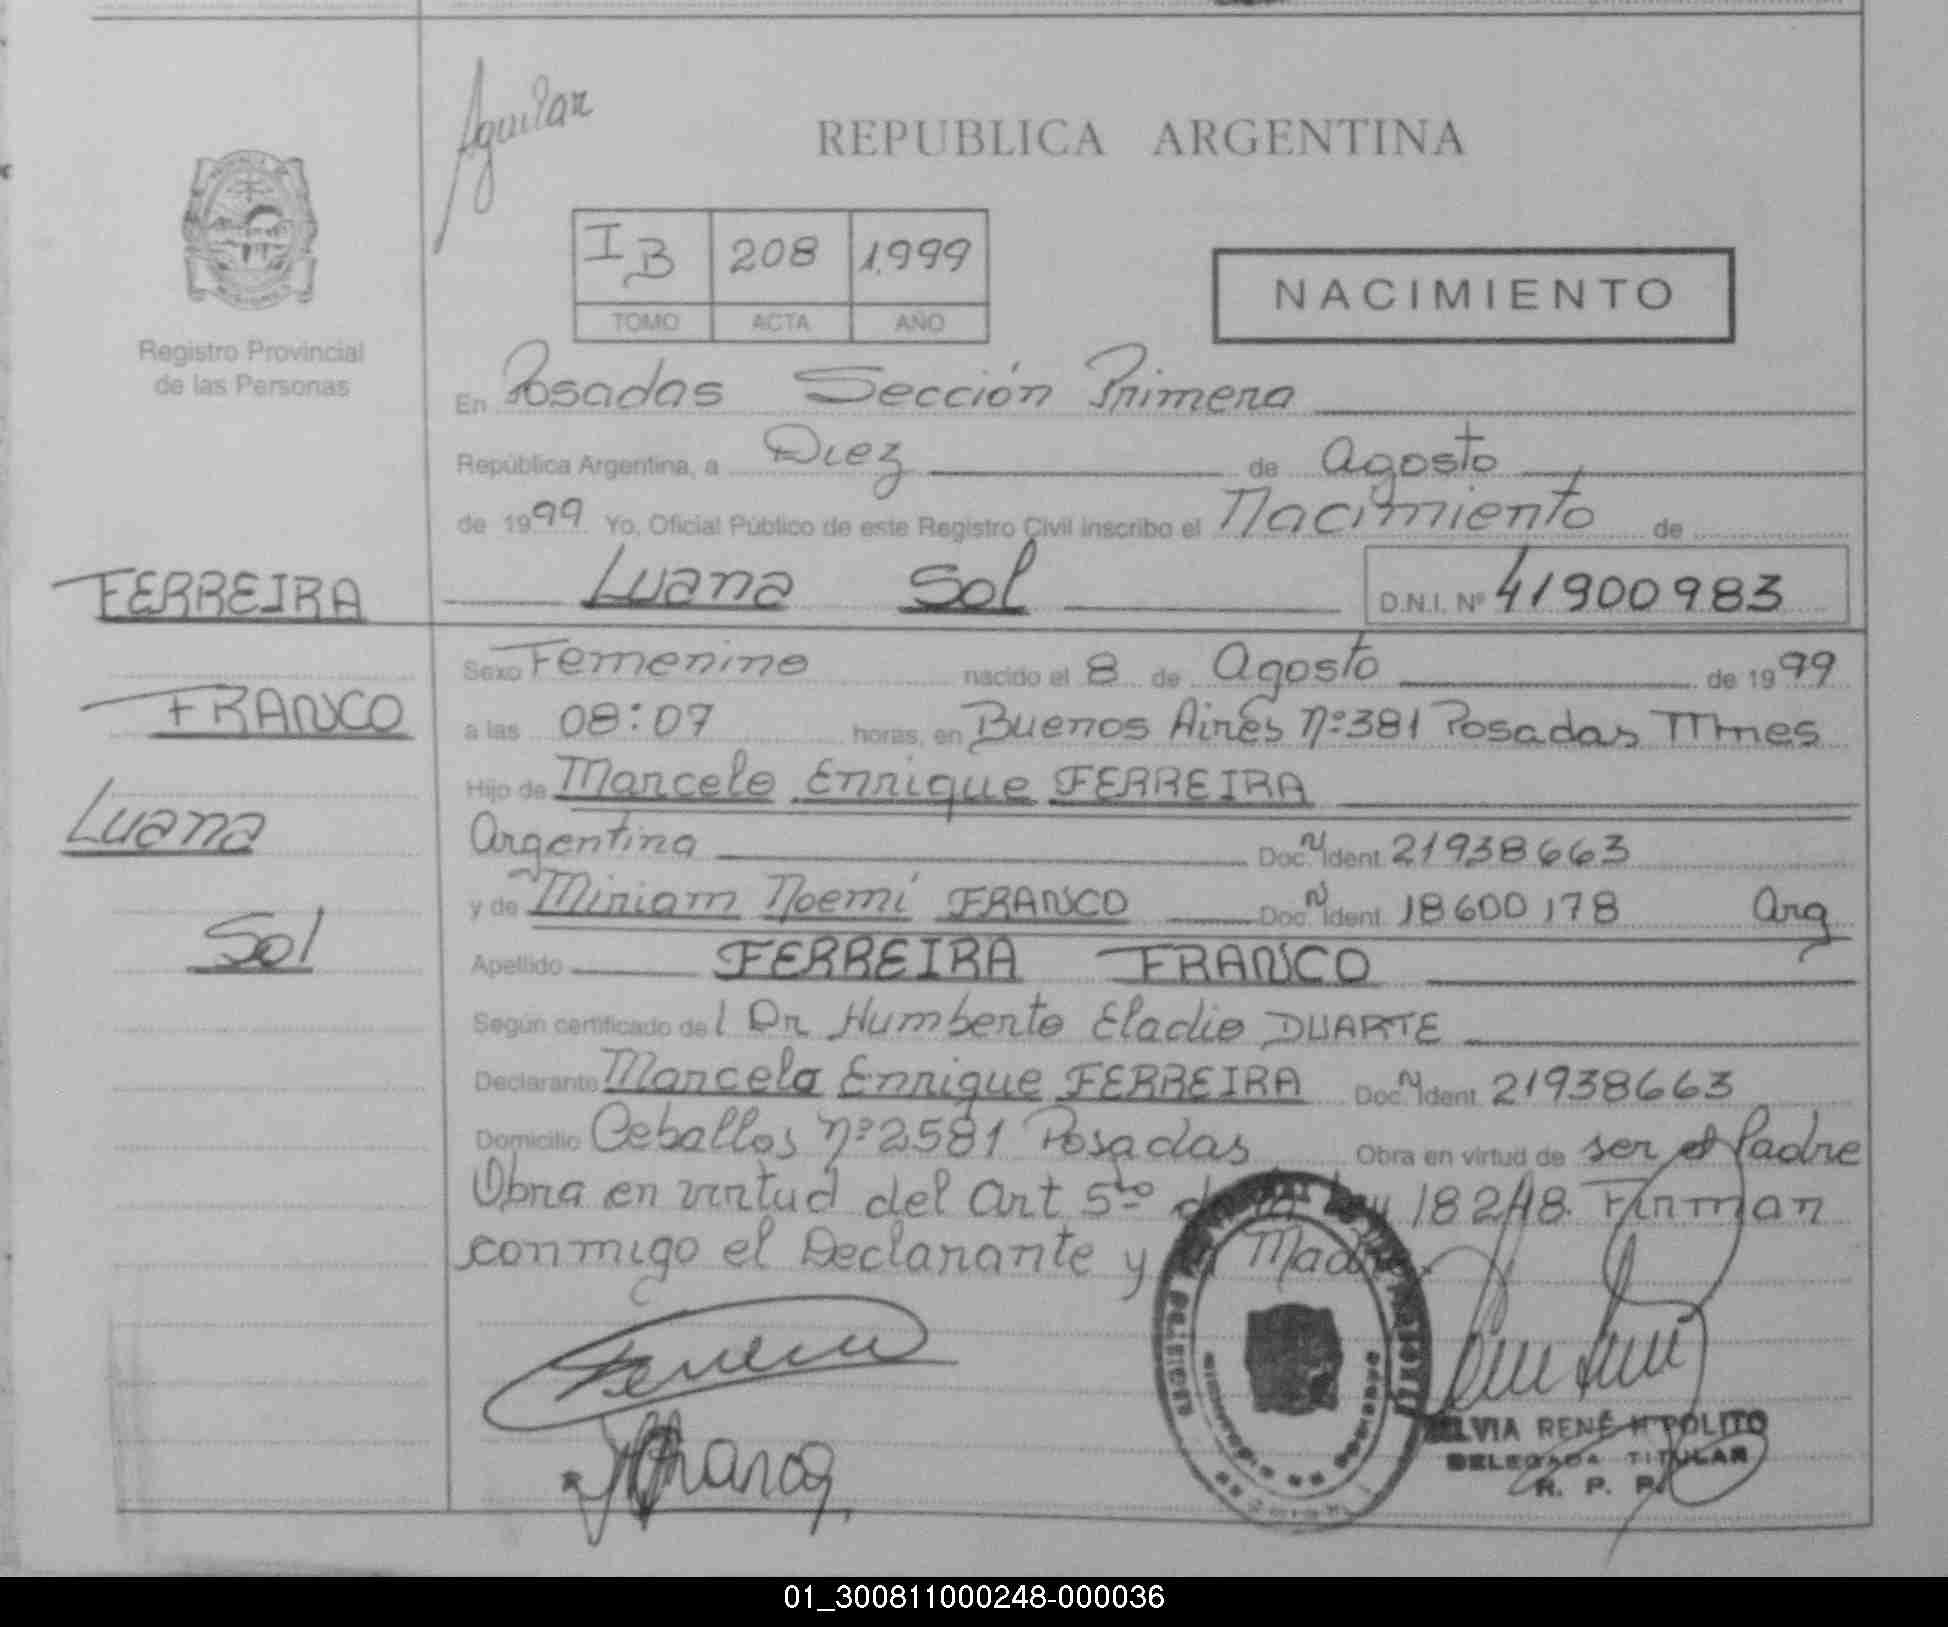 Aguilar
REPUBLICA ARGENTINA
IB 208 1.999
TOMO ACTA AÑO
NACIMIENTO
Registro Provincial
de las Personas
En Posadas Sección Primera
República Argentina, a Diez de Agosto
de 1999 Yo, Oficial Público de este Registro Civil inscribo el Nacimiento de
Luana Sol D.N.I. Nº 41900983
FERREIRA
FRANCO
Luana
Sol
Sexo Femenino nacido el 8 de Agosto de 1999
a las 08:07 horas, en Buenos Aires Nº 381 Posadas Mnes
Hijo de Marcelo Enrique FERREIRA
Argentina Doc. Ident. 21938663
y de Miriam Noemí FRANCO Doc. Ident. 18600178 Arg
Apellido FERREIRA FRANCO
Según certificado del Dr Humberto Eladio DUARTE
Declarante Marcelo Enrique FERREIRA Doc. Ident. 21938663
Domicilio Ceballos Nº 2581 Posadas Obra en virtud de ser el Padre
Obra en virtud del Art 5to de la Ley 18248. Firman
conmigo el Declarante y la Madre
SILVIA RENÉ HIPOLITO
DELEGADA TITULAR
R. P. P.
01_300811000248-000036